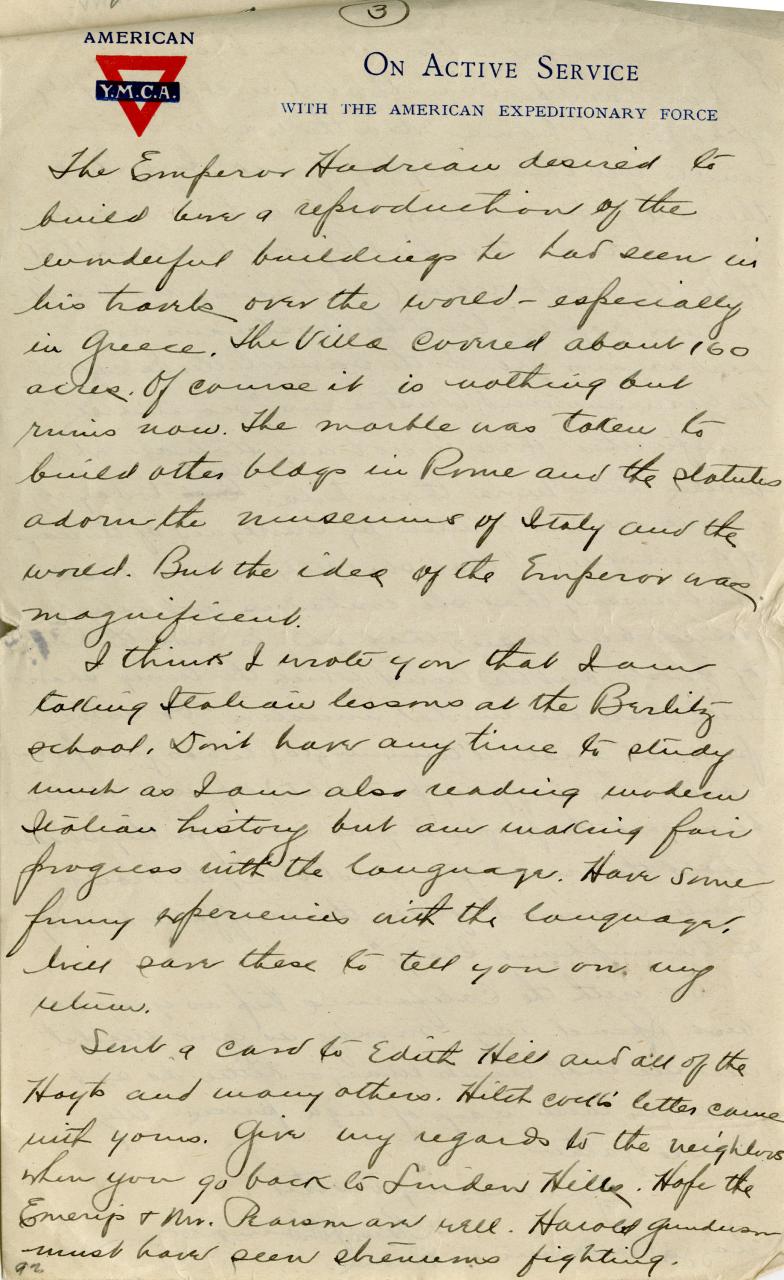 3
AMERICAN
Y.M.C.A.
ON ACTIVE SERVICE
WITH THE AMERICAN EXPEDITIONARY FORCE
The Emperor Hadrian desired to
build here a reproduction of the
wonderful buildings he had seen in
his travels over the world - especially
in Greece. The Villa covered about 160
acres. Of course it is nothing but
ruins now. The marble was taken to
build other bldgs in Rome and the statutes
adorn the museums of Italy and the
world. But the idea of the Emperor was
magnificent.
I think I wrote you that I am
taking Italian lessons at the Berlitz
school. Don't have any time to study
much as I am also reading modern
Italian history but am making fair
progress with the language. Have some
funny experiences with the language.
Will save these to tell you on my
return.
Sent a card to Edith Hill and all of the
Hoyts and many others. Hitchcock's letter came
with yours. Give my regards to the neighbors
when you go back to Linden Hills. Hope the
& Mr. Pearson are well. Harold Gunderson
must have seen strenuous fighting.